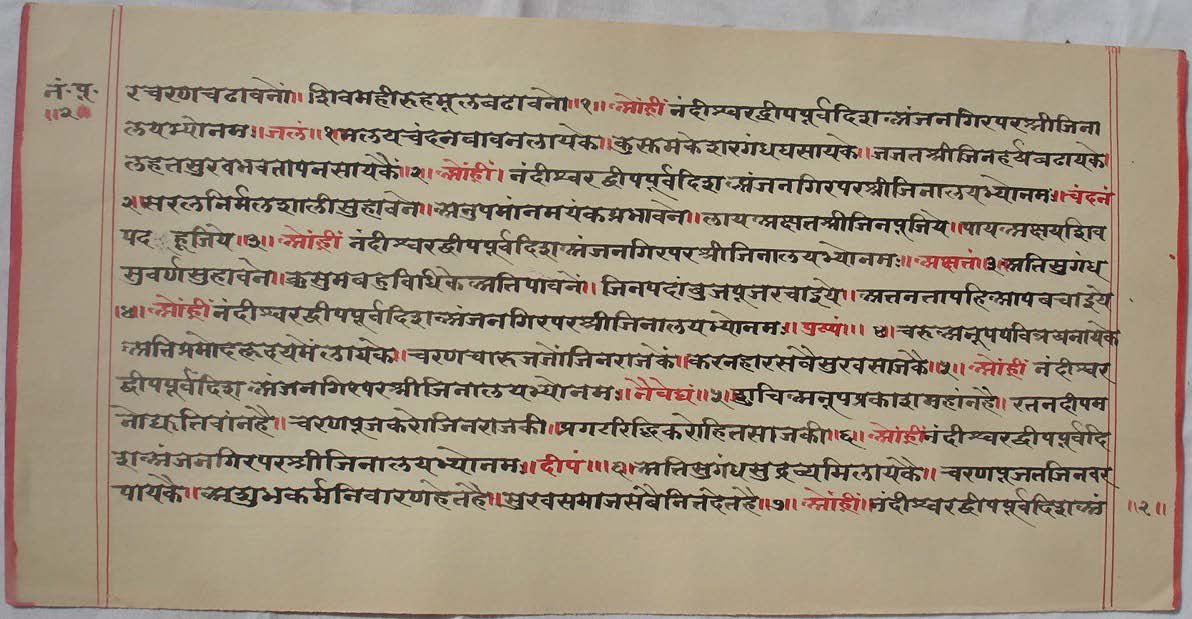 नं॰पू॰
॥२॥
रचरणचढावनों॥ शिवमहीरूहमूलबढावनो॥१॥ ओंह्रीं नंदीश्वरद्वीपपूर्वदिश अंजनगिरपरश्रीजिना
लयभ्योनमः॥ जलं॥ १ मलयचंदनवावनलायेके॥ कुसकमकेशरगंधघसायके॥ जजतश्रीजिनहर्यबढायके
लहतसुरवभवतापनसायेकैं॥२॥ ओंह्रीं। नंदीश्वरद्वीपपूर्वदिश अंजनगिरपरश्रीजिनालयभ्योनमः॥ चंदनं
२॥ सरलनिर्मलशालीसुहावेने॥ अनुपमांनमयंकप्रभावने॥ लाय अक्षतश्रीजिनपूजिये॥ पाय अक्षयशिव
पद हूजिये॥३॥ ओंह्रीं नंदीश्वरद्वीपपूर्वदिश अंजनगिरपरश्रीजिनालयभ्योनमः॥ अक्षतं॥ ३॥ अतिसुगंध
सुवर्णसुहावने॥ कुसुमबहुविधिके अतिपावनें॥ जिनपदांबुजपूजरचाइये॥ अतनतापहिआपबचाइये
॥४॥ ओंह्रीं नंदीश्वरद्वीपपूर्वदिश अंजनगिरपरश्रीजिनालयभ्योनमः॥ पुष्पं॥ ४॥ चरू अनूपपवित्रबनायके
अतिप्रमोदहृदयेमें लायेके॥ चरणचारूजजोंजिनराजकें॥ करनहारसबैसुरवसाजकैं॥५॥ ओंह्रीं नंदीश्वर
द्वीपपूर्वदिश अंजनगिरपरश्रीजिनालयभ्योनमः॥ नैवेद्यं॥ ५॥ शुचि अनूपप्रकाशमहांनहै॥ रतनदीपम
नोद्युतिवांनहै॥ चरणपूजकरोजिनराजकी॥ प्रगटरिद्धिकरोहितसाजकी॥६॥ ओंह्रीं नंदीश्वरद्वीपपूर्वदि
श अंजनगिरपरश्रीजिनालयभ्योनमः॥ दीपं॥ ६॥ अतिसुगंधसुद्रव्यमिलायेकै॥ चरणपूजतजिनवर
पायेकै॥ अशुभकर्मनिवारणहेतहै॥ सुरवसमाजसबैनितदेतहै॥७॥ ओंह्रीं॥ नंदीश्वरद्वीपपूर्वदिश अं
॥२॥